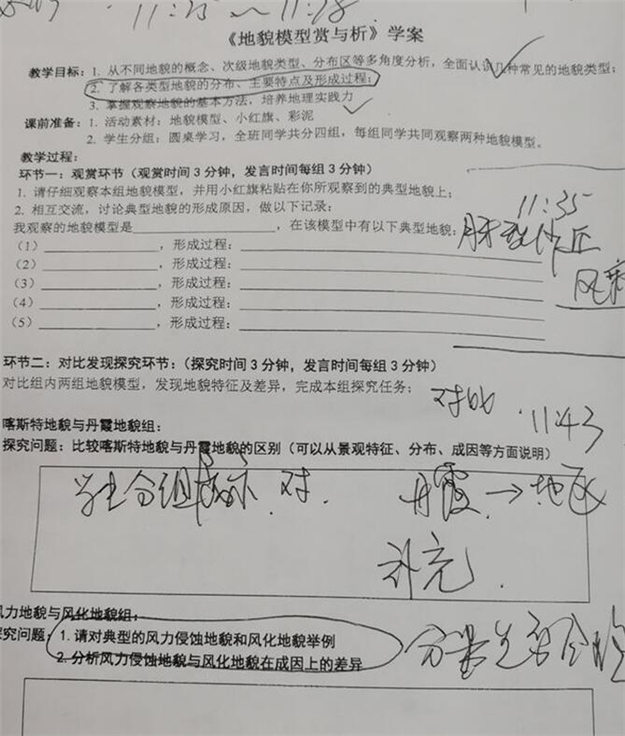 11:25～11:28
《地貌模型赏与析》学案
教学目标：1. 从不同地貌的概念、次级地貌类型、分布区等多角度分析，全面认识几种常见的地貌类型；
2. 了解各类型地貌的分布、主要特点及形成过程；
3. 掌握观察地貌的基本方法，培养地理实践力
课前准备：1. 活动素材：地貌模型、小红旗、彩泥
2. 学生分组：圆桌学习，全班同学共分四组，每组同学共同观察两种地貌模型。
教学过程：
环节一：观赏环节（观赏时间 3 分钟，发言时间每组 3 分钟）
1. 请仔细观察本组地貌模型，并用小红旗粘贴在你所观察到的典型地貌上；
11:35
2. 相互交流，讨论典型地貌的形成原因，做以下记录：
我观察的地貌模型是____，在该模型中有以下典型地貌：
（1）____，形成过程：____
（2）____，形成过程：____
（3）____，形成过程：____
（4）____，形成过程：____
（5）____，形成过程：____
环节二：对比发现探究环节：（探究时间 3 分钟，发言时间每组 3 分钟）
对比组内两组地貌模型，发现地貌特征及差异，完成本组探究任务；
对比 11:43
喀斯特地貌与丹霞地貌组：
探究问题：比较喀斯特地貌与丹霞地貌的区别（可以从景观特征、分布、成因等方面说明）
学生分组展示 对. 丹霞→地区
补充.
风力地貌与风化地貌组：
探究问题：1. 请对典型的风力侵蚀地貌和风化地貌举例
2. 分析风力侵蚀地貌与风化地貌在成因上的差异